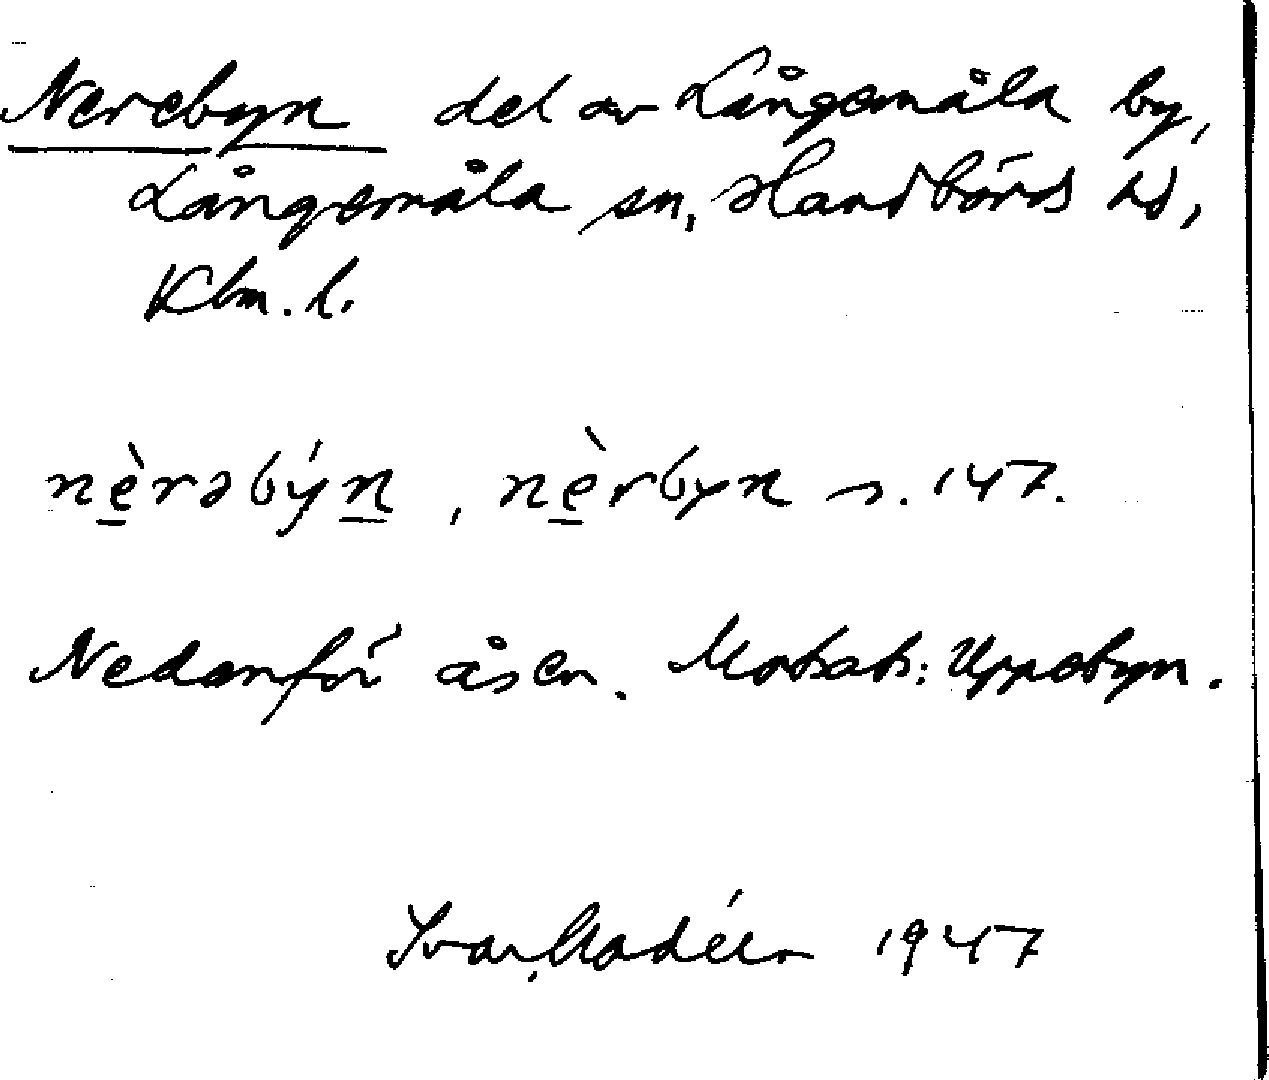 Nerebyn del av Långemåla by,
Långemåla sn, Handbörds hd,
Klm. l.
nèrəbýn, nèrbyn s. 147.
Nedanför åsen. Motsats: Uppebyn.
Ivar Modéer 1947